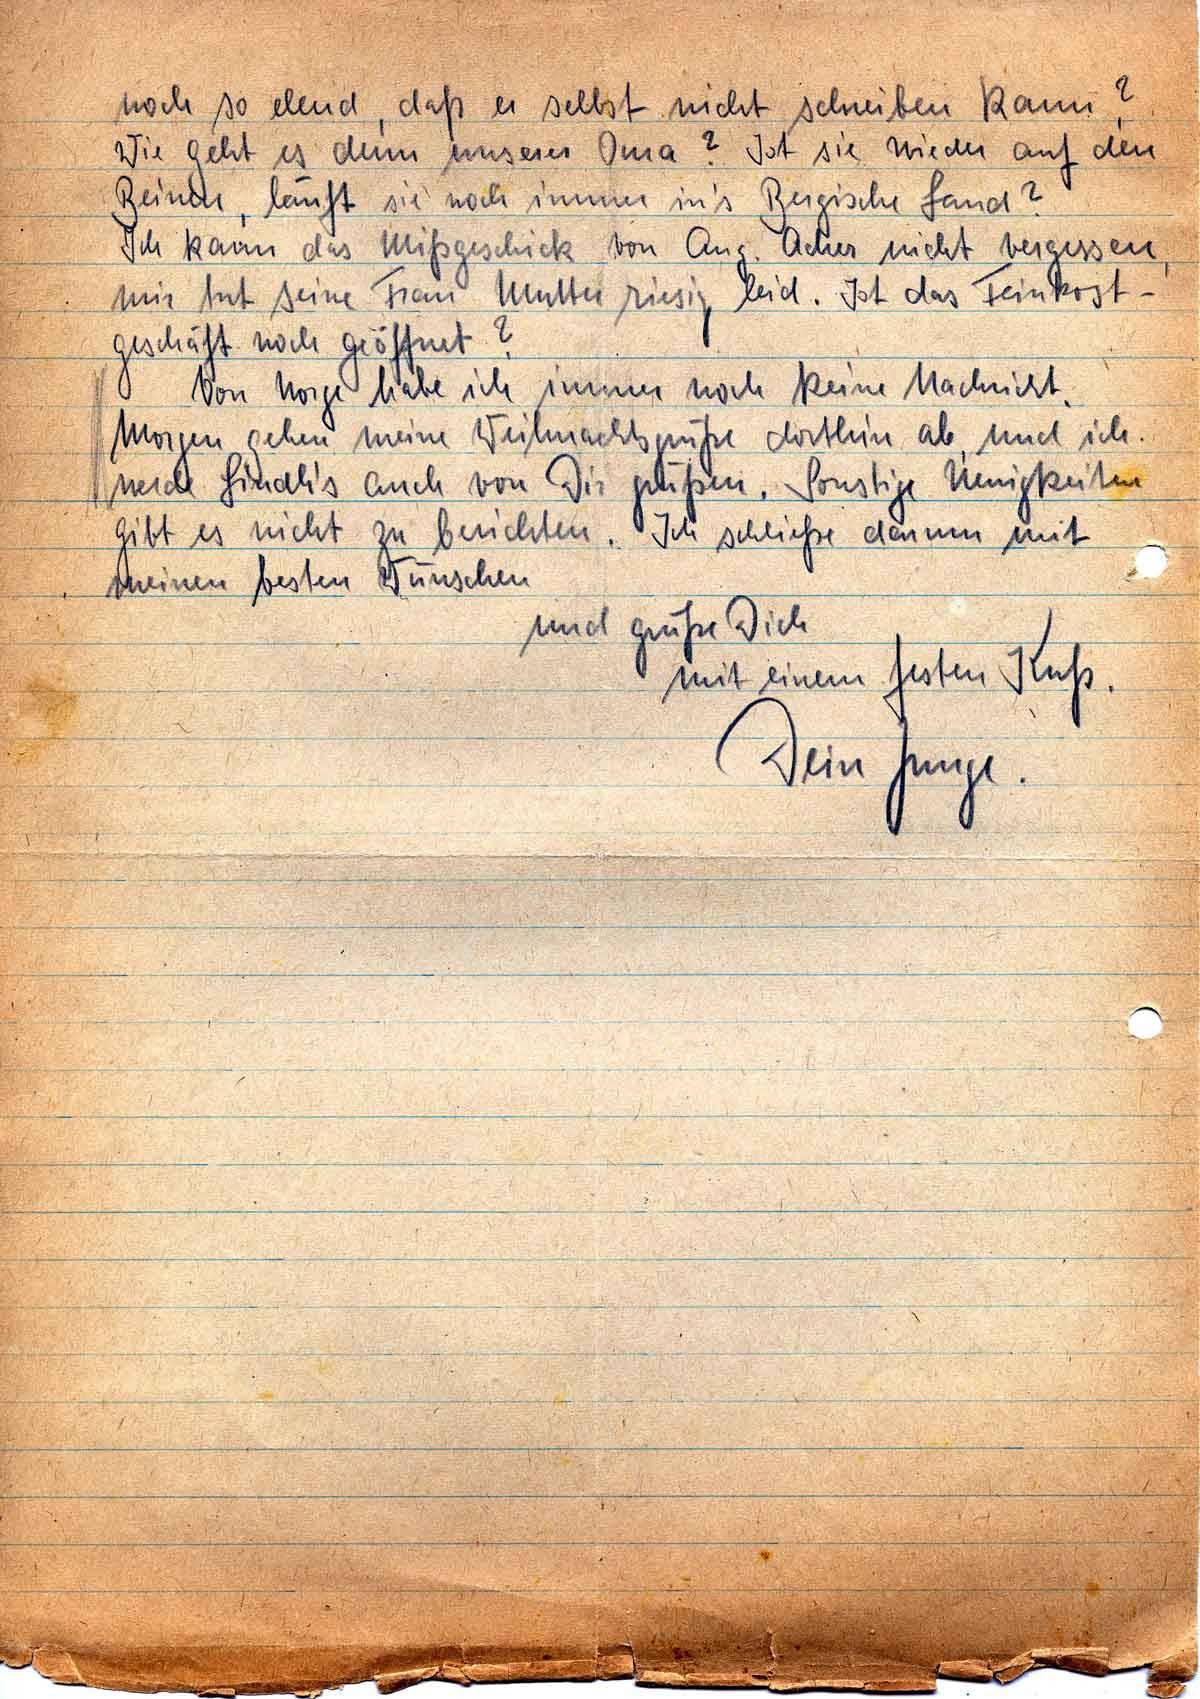 noch so elend, daß er selbst nicht schreiben kann?
Wie geht es denn unserer Oma? Ist sie wieder auf den
Beinen, läuft sie noch immer in's Bergische Land?
Ich kann das Mißgeschick von Aug. Acher nicht vergessen,
mir tut seine Frau Mutter riesig leid. Ist das Feinkost-
geschäft noch geöffnet?
Von Norge habe ich immer noch keine Nachricht.
Morgen gehen meine Weihnachtsgrüße dorthin ab, und ich
werde Lindli's auch von Dir grüßen. Sonstige Neuigkeiten
gibt es nicht zu berichten. Ich schließe darum mit
meinen besten Wünschen
und grüße Dich
mit einem festen Kuß.
Dein Junge.